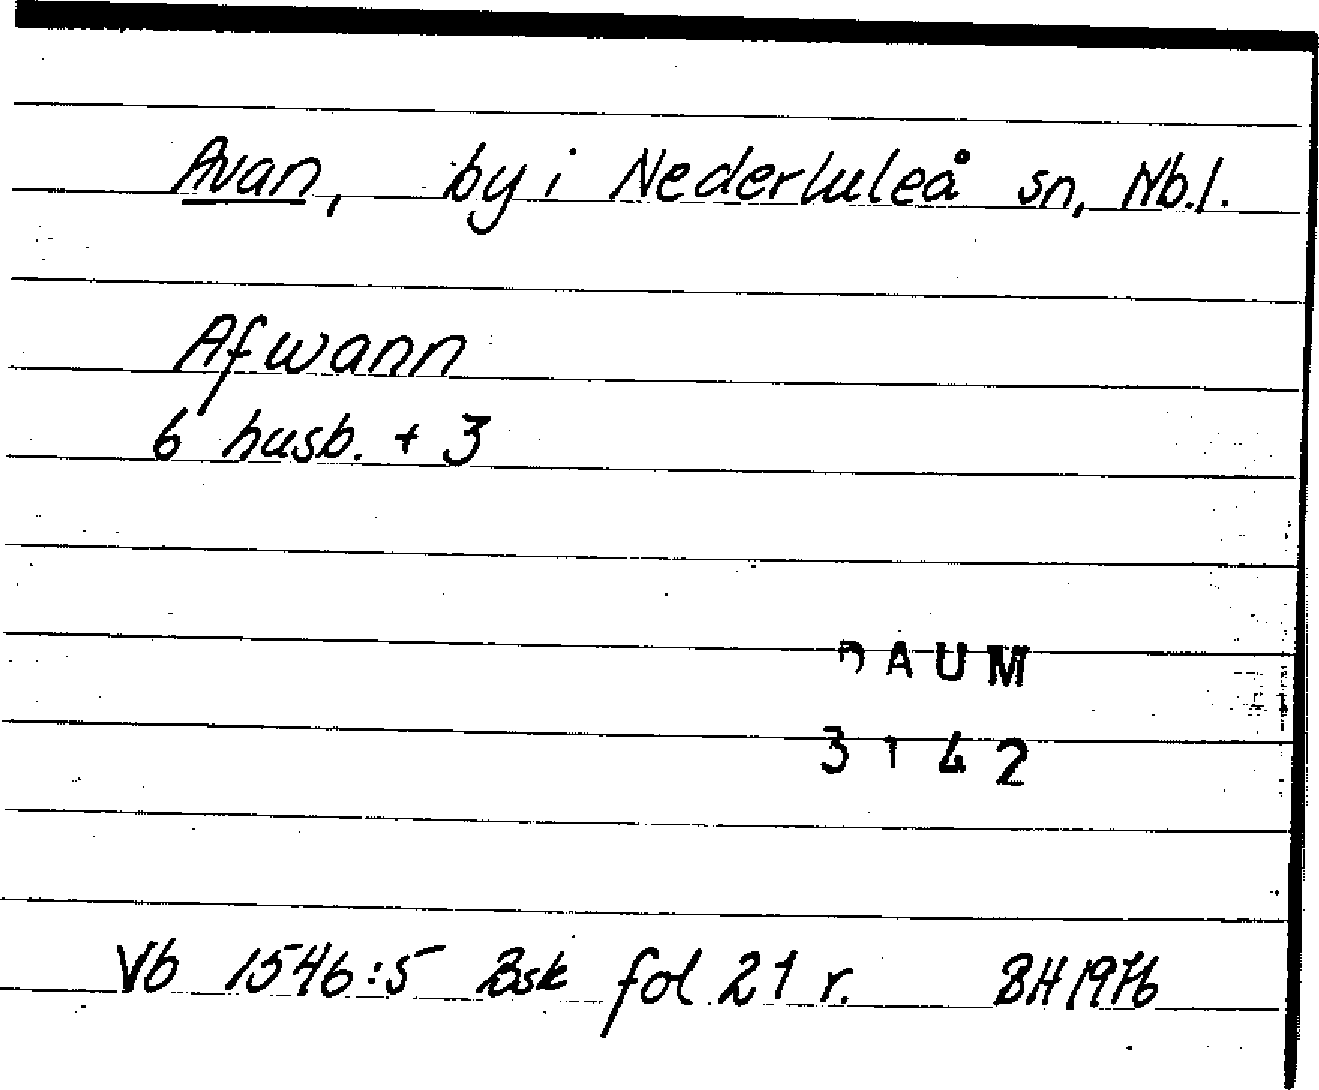 Avan, by i Nederluleå sn, Nb.l.
Afwann
6 husb. + 3
DAUM
3142
Vb 1546:5 Bsk fol 21 r. BH 1976